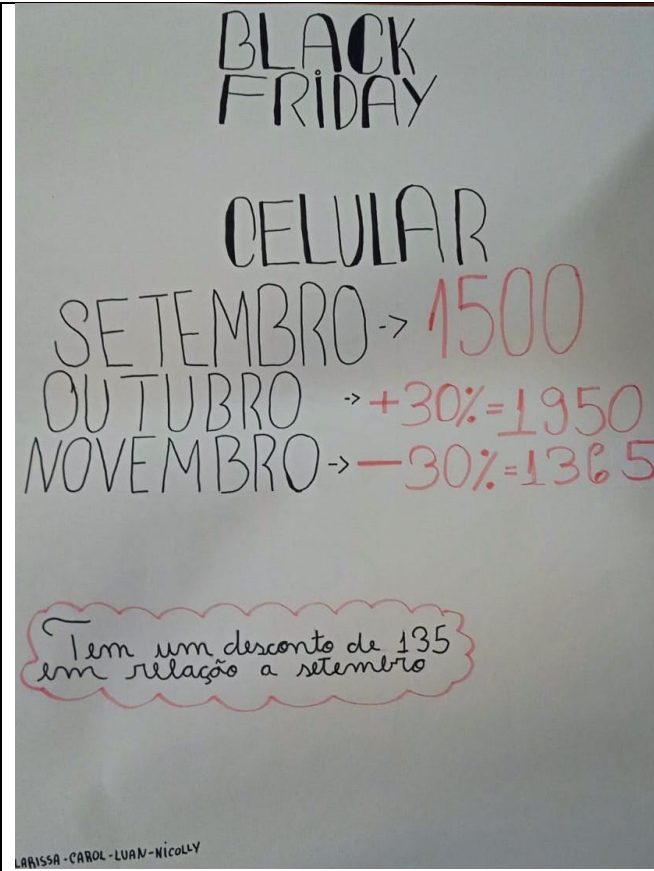 BLACK
FRIDAY
CELULAR
SETEMBRO -> 1500
OUTUBRO -> +30%=1950
NOVEMBRO -> -30%=1365
Tem um desconto de 135
em relação a setembro
LARISSA-CAROL-LUAN-NICOLLY